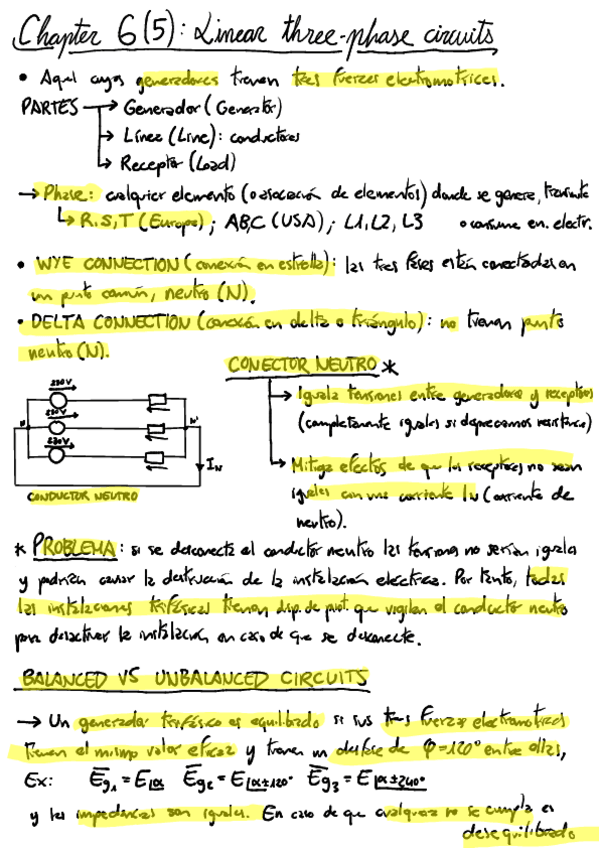 Chapter 6(5): Linear three-phase circuits
• Aquel cuyos generadores tienen tres fuerzas electromotrices.
PARTES → Generador (Generator)
→ Línea (Line): conductores
→ Receptor (Load)
→ Phase: cualquier elemento (o asociación de elementos) donde se genere, transmite
↳ R,S,T (Europe); ABC (USA); L1, L2, L3 o consume en. electr.
• WYE CONNECTION (conexión en estrella): las tres fases están conectadas en
un punto común, neutro (N).
• DELTA CONNECTION (conexión en delta o triángulo): no tienen punto
neutro (N).
CONECTOR NEUTRO *
→ Iguala tensiones entre generadores y receptores
(completamente iguales si despreciamos resistencia)
→ Mitiga efectos de que los receptores no sean
iguales con una corriente IN (corriente de
neutro).
230V
230V
230V
N
N'
IN
CONDUCTOR NEUTRO
* PROBLEMA: si se desconecta el conductor neutro las tensiones no serían iguales
y podrían causar la destrucción de la instalación eléctrica. Por tanto, todas
las instalaciones trifásicas tienen disp. de prot. que vigilan el conductor neutro
para desactivar la instalación en caso de que se desconecte.
BALANCED VS UNBALANCED CIRCUITS
→ Un generador trifásico es equilibrado si sus tres fuerzas electromotrices
tienen el mismo valor eficaz y tienen un desfase de φ=120° entre ellas,
Ex: Eg1 = E|α Eg2 = E|α±120° Eg3 = E|α±240°
y las impedancias son iguales. En caso de que cualquiera no se cumpla es
desequilibrado